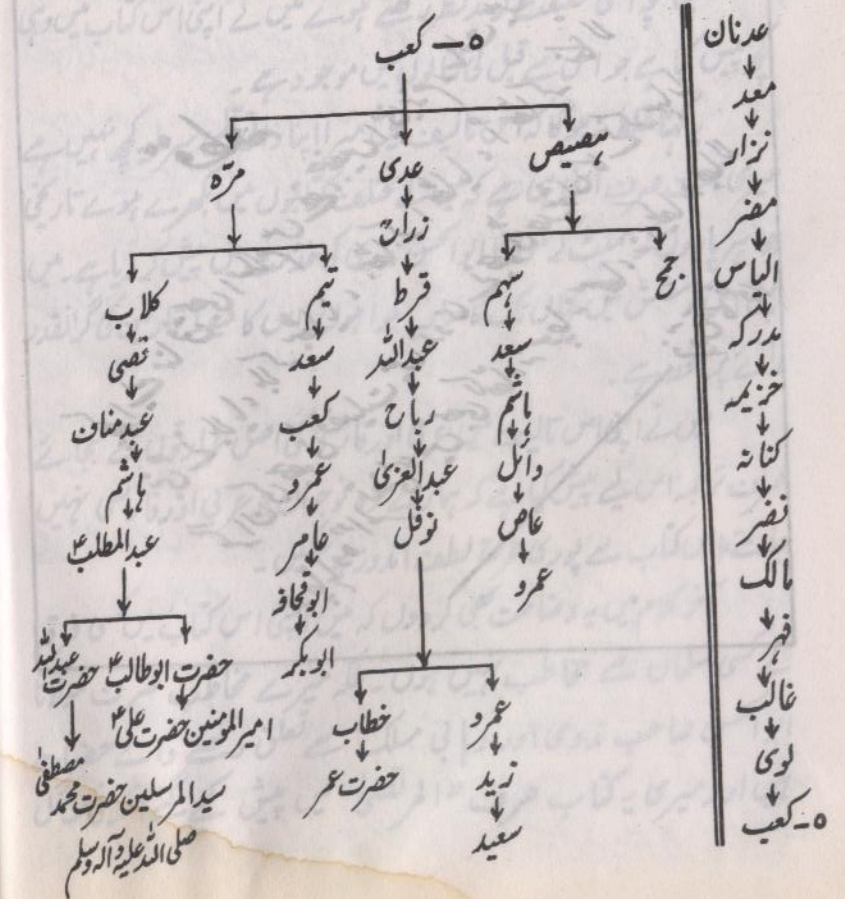 عدنان
معد
نزار
مضر
الیاس
مدرکہ
خزیمہ
کنانہ
نضر
مالک
فہر
غالب
لوی
۵۔ کعب
۵ – کعب
ہصیص
عدی
مرّہ
جمح
سہم
سعد
ہاشم
وائل
عاص
عمرو
زراح
قرط
عبداللہ
رباح
عبدالعزیٰ
نوفل
عمرو
زید
سعید
خطاب
حضرت عمر
تیم
سعد
کعب
عمرو
عامر
ابوقحافہ
ابوبکر
کلاب
قصی
عبدمناف
ہاشم
عبدالمطلبؑ
حضرت ابوطالبؑ
امیرالمومنین حضرت علیؑ
حضرت عبداللہ
سیدالمرسلین حضرت محمد مصطفیٰ
صلی اللہ علیہ وآلہ وسلم